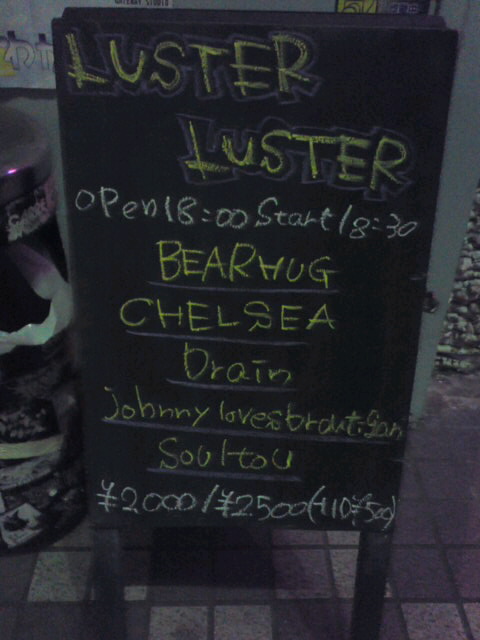 LUSTER
LUSTER
OPEN 18:00 Start 18:30
BEARHUG
CHELSEA
Drain
Johnny loves
Soultou
¥2000/¥2500(+1D¥500)